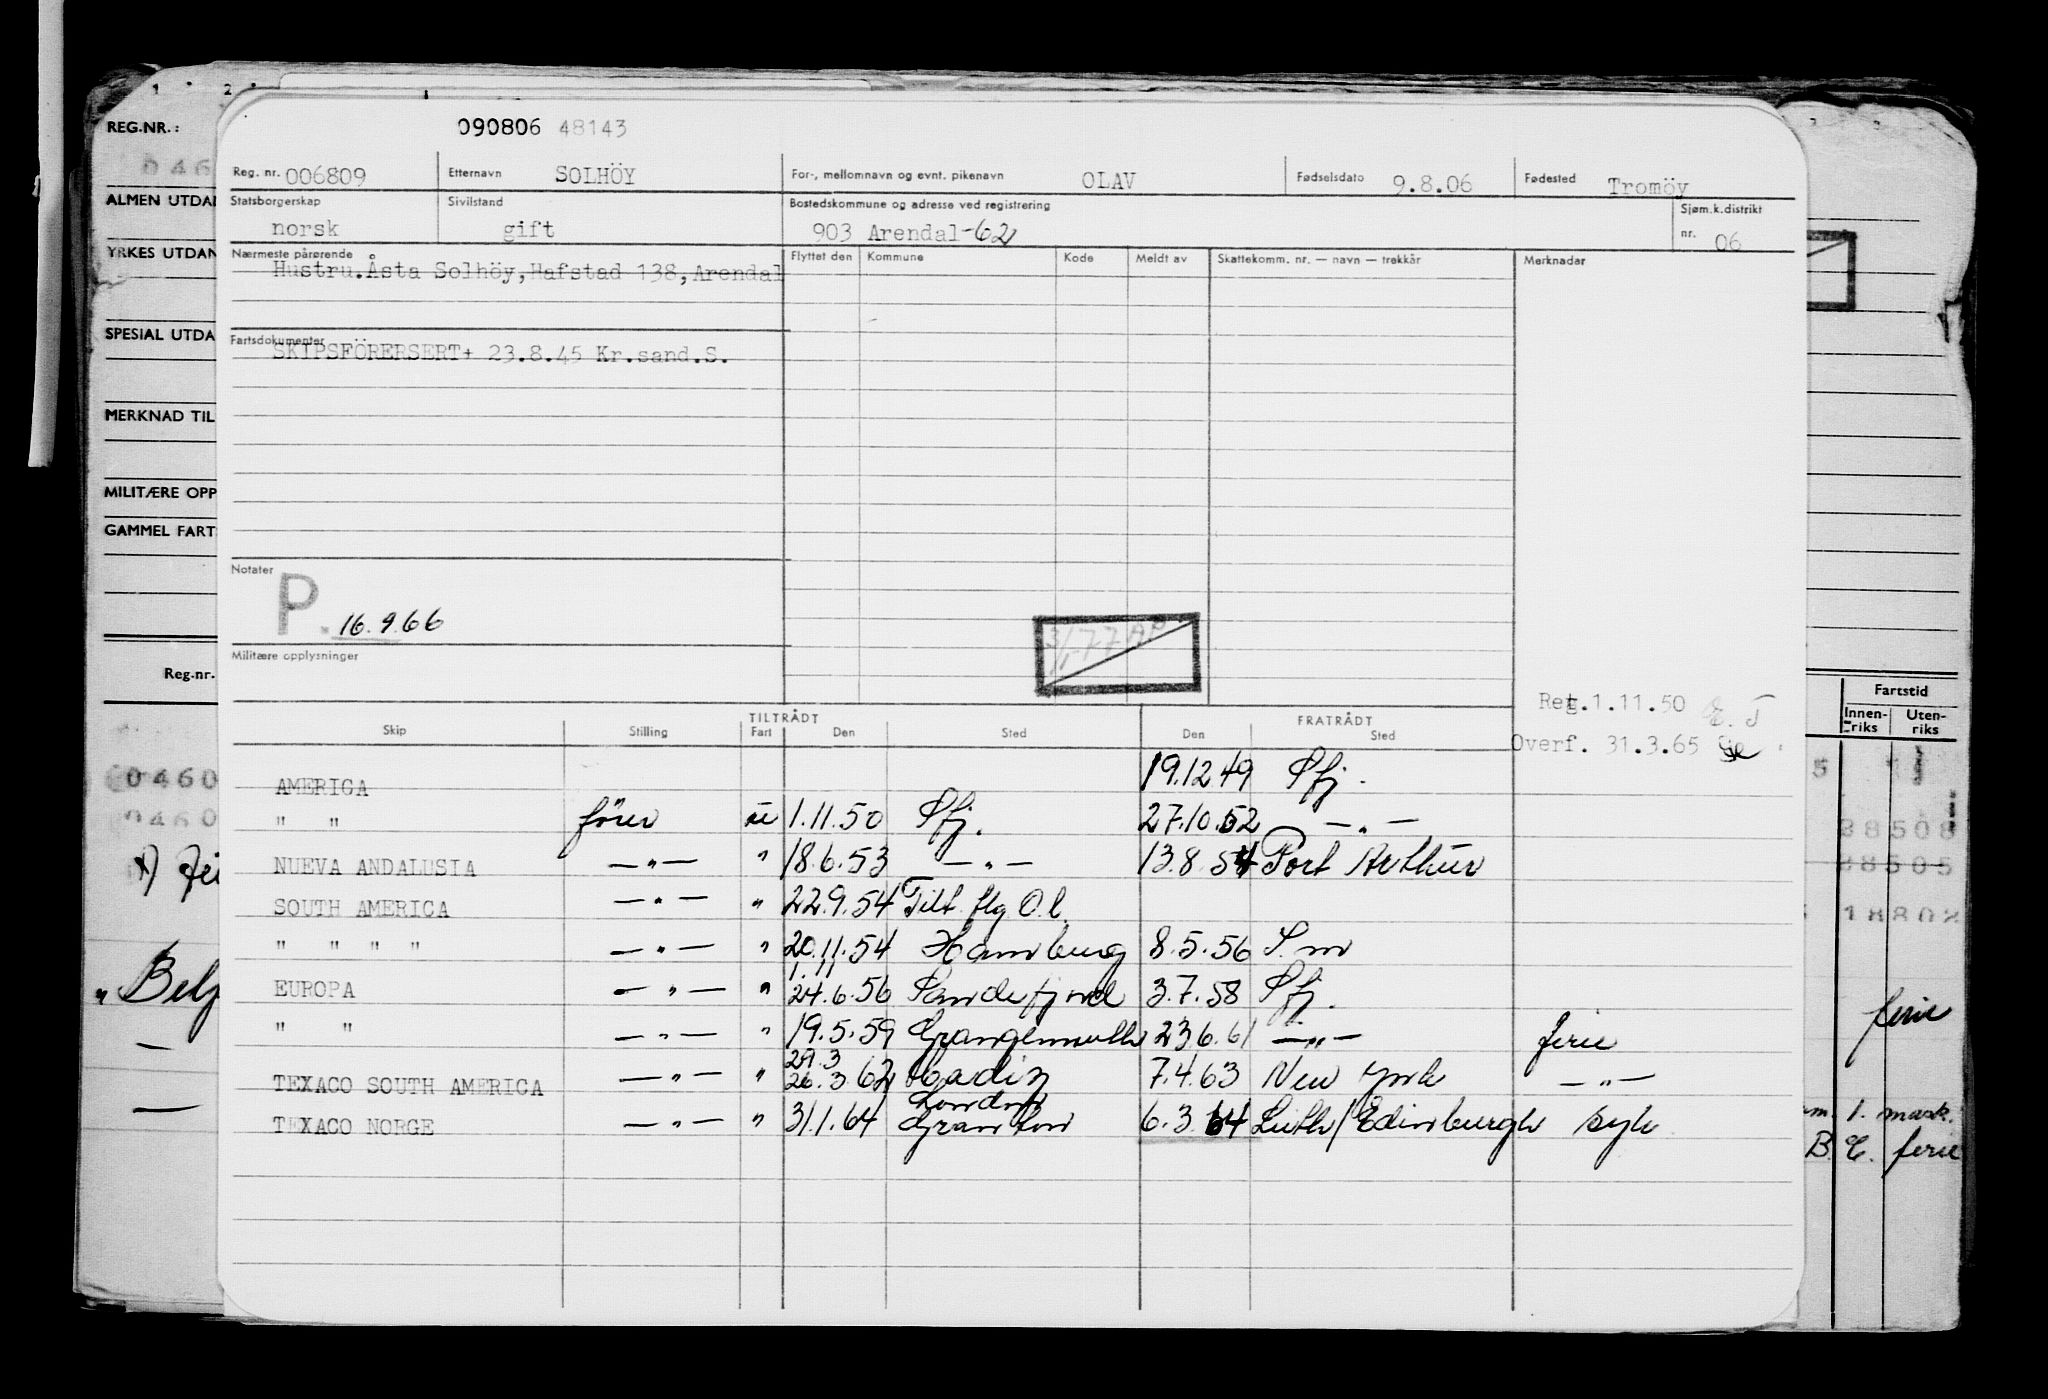 REG.NR.:
090806 48143
Reg. nr. 006809 Etternavn SOLHÖY For-, mellomnavn og evnt. pikenavn OLAV Fødselsdato 9.8.06 Fødested Tromöy
ALMEN UTDAN
Statsborgerskap norsk Sivilstand gift Bostedskommune og adresse ved registrering 903 Arendal-62 Sjøm.k.distrikt nr. 06
YRKES UTDAN
Nærmeste pårørende Flyttet den Kommune Kode Meldt av Skattekomm. nr. — navn — trekkår Merknader
Hustru.Åsta Solhöy,Hafstad 138,Arendal
SPESIAL UTDA
Fartsdokumenter
SKIPSFÖRERSERT+ 23.8.45 Kr.sand.S.
MERKNAD TIL
MILITÆRE OPP
GAMMEL FART
Notater
P. 16.9.66
3/1-77 AP
Militære opplysninger
Reg.nr.
Reg.1.11.50
Overf. 31.3.65
Fartstid
Innen-riks Uten-riks
TILTRÅDT FRATRÅDT
Skip Stilling Fart Den Sted Den Sted
AMERICA 19.12.49 Sfj.
" " förer u 1.11.50 Sfj. 27.10.52 —"—
NUEVA ANDALUSIA —"— " 18.6.53 —"— 13.8.54 Port Arthur
SOUTH AMERICA —"— " 22.9.54 Tilt. flg O.l.
" " " " —"— " 20.11.54 Hamburg 8.5.56 S.m
1.11
EUROPA —"— " 24.6.56 Sandefjord 3.7.58 Sfj.
" " —"— " 19.5.59 Grangemouth 23.6.61 —"— ferie
29.3
TEXACO SOUTH AMERICA —"— " 26.3.62 7.4.63 New York —"—
London
TEXACO NORGE —"— " 31.1.64 Granton 6.3.64 Leith/Edinburgh syk
0460
0460
38508
38505
18802
ferie
1. mask.
ferie